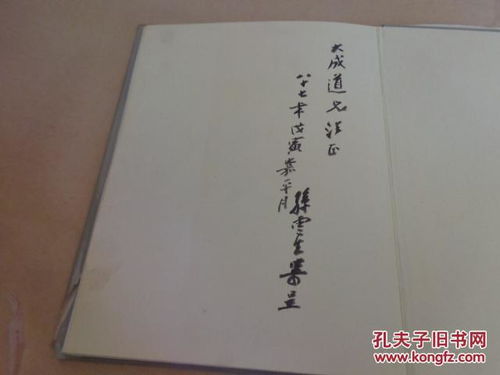 大成道兄正
八十七年戊寅嘉平月
孫雲生敬呈
孔夫子旧书网
www.kongfz.com